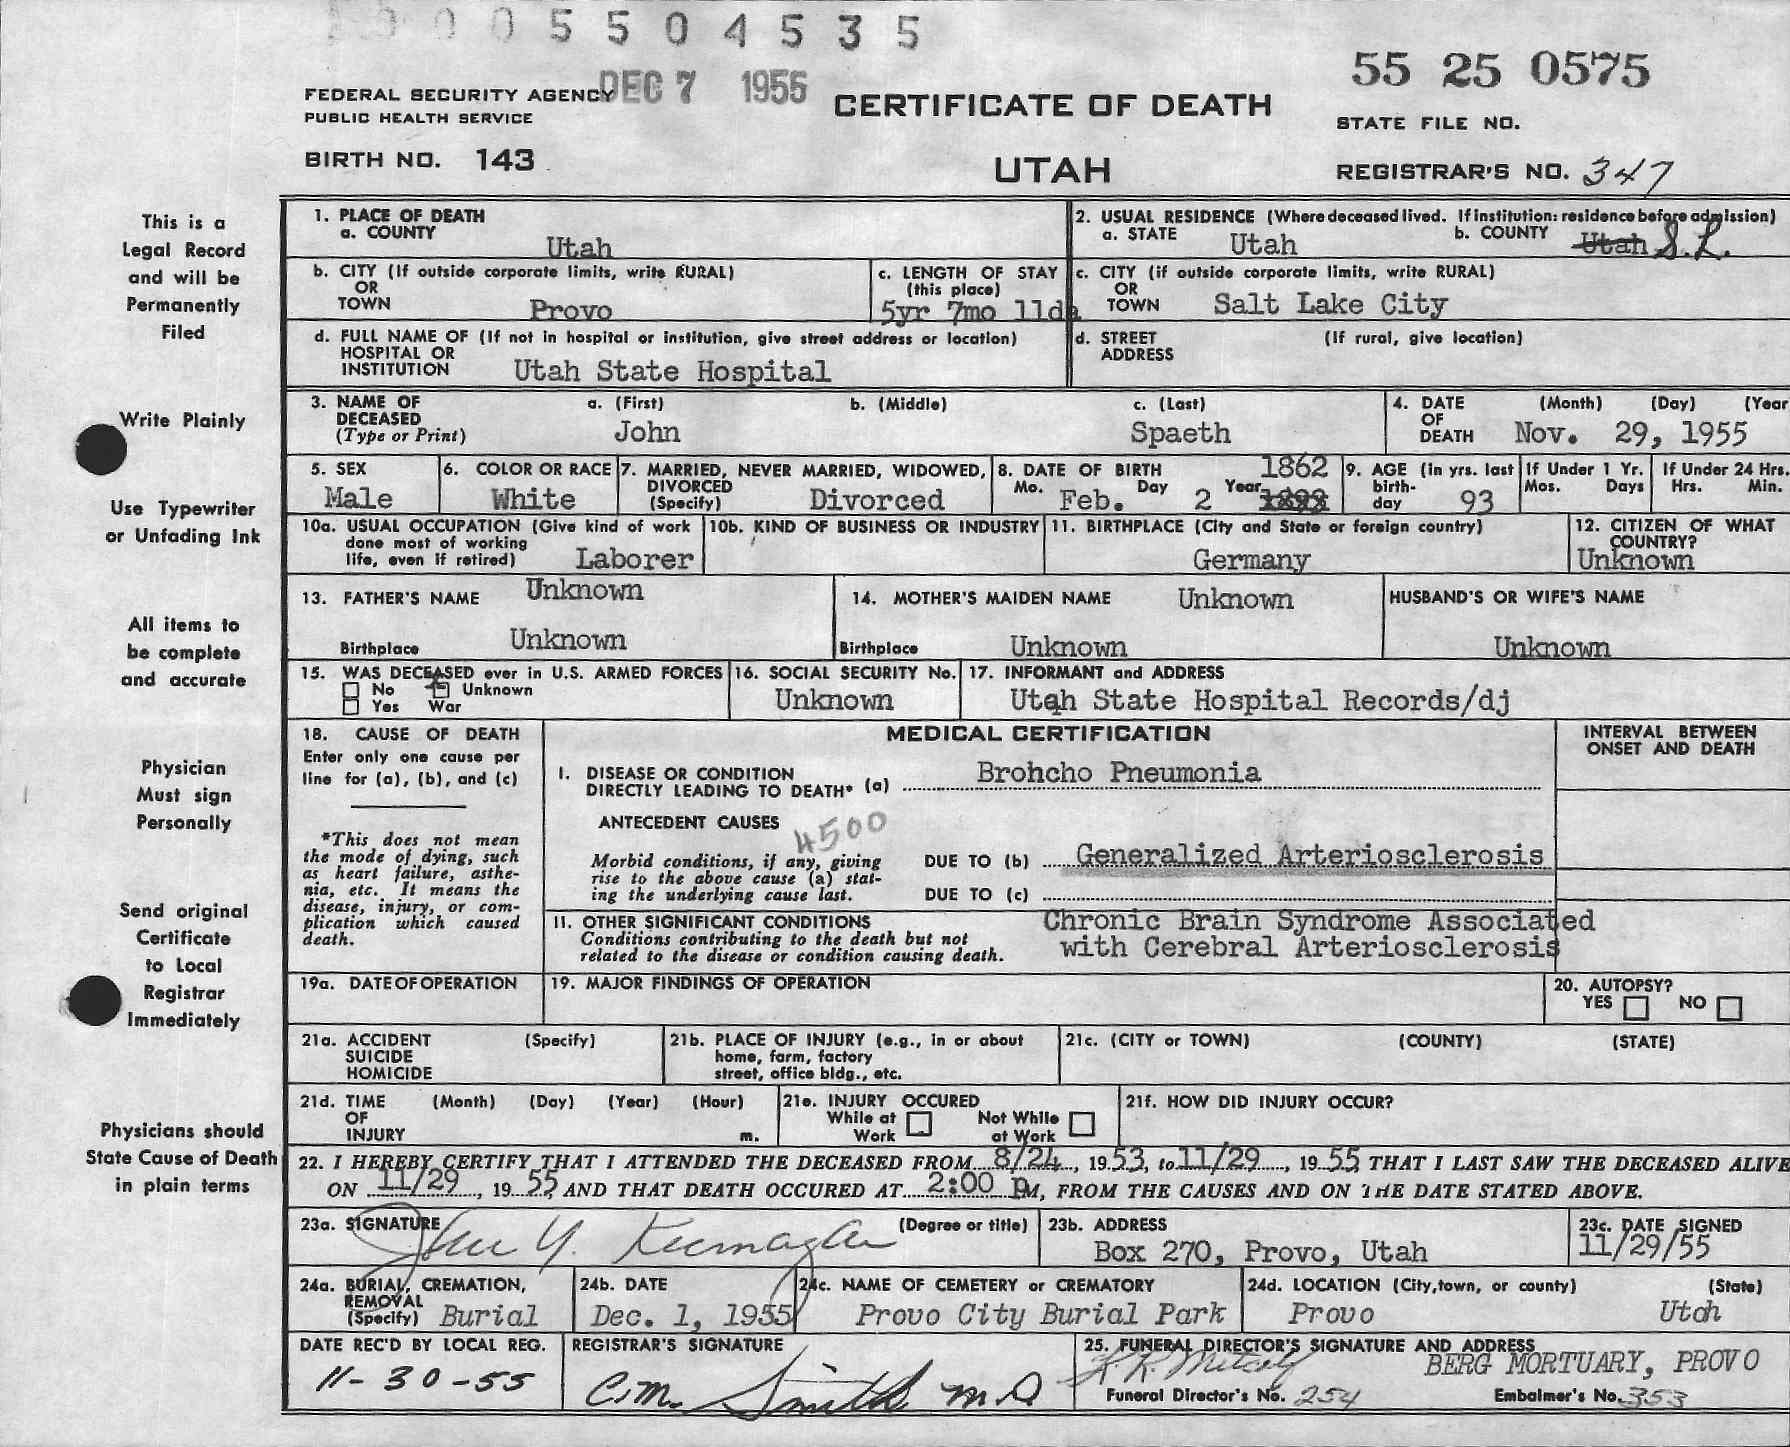 5 5 0 4 5 3 5
DEC 7 1955
55 25 0575
FEDERAL SECURITY AGENCY
PUBLIC HEALTH SERVICE
CERTIFICATE OF DEATH
STATE FILE NO.
BIRTH NO. 143
UTAH
REGISTRAR'S NO. 347
This is a
Legal Record
and will be
Permanently
Filed
Write Plainly
Use Typewriter
or Unfading Ink
All items to
be complete
and accurate
Physician
Must sign
Personally
Send original
Certificate
to Local
Registrar
Immediately
Physicians should
State Cause of Death
in plain terms
1. PLACE OF DEATH
a. COUNTY Utah
2. USUAL RESIDENCE (Where deceased lived. If institution: residence before admission)
a. STATE Utah b. COUNTY Utah S.L.
b. CITY (If outside corporate limits, write RURAL)
OR
TOWN Provo
c. LENGTH OF STAY
(this place)
5yr 7mo 11da
c. CITY (if outside corporate limits, write RURAL)
OR
TOWN Salt Lake City
d. FULL NAME OF (If not in hospital or institution, give street address or location)
HOSPITAL OR
INSTITUTION Utah State Hospital
d. STREET (If rural, give location)
ADDRESS
3. NAME OF a. (First) b. (Middle) c. (Last)
DECEASED
(Type or Print) John Spaeth
4. DATE (Month) (Day) (Year
OF
DEATH Nov. 29, 1955
5. SEX
Male
6. COLOR OR RACE
White
7. MARRIED, NEVER MARRIED, WIDOWED,
DIVORCED
(Specify) Divorced
8. DATE OF BIRTH 1862
Mo. Day Year
Feb. 2
9. AGE (in yrs. last
birth-
day 93
If Under 1 Yr.
Mos. Days
If Under 24 Hrs.
Hrs. Min.
10a. USUAL OCCUPATION (Give kind of work
done most of working
life, even if retired) Laborer
10b. KIND OF BUSINESS OR INDUSTRY
11. BIRTHPLACE (City and State or foreign country)
Germany
12. CITIZEN OF WHAT
COUNTRY?
Unknown
13. FATHER'S NAME Unknown
Birthplace Unknown
14. MOTHER'S MAIDEN NAME Unknown
Birthplace Unknown
HUSBAND'S OR WIFE'S NAME
Unknown
15. WAS DECEASED ever in U.S. ARMED FORCES
No Unknown
Yes War
16. SOCIAL SECURITY No.
Unknown
17. INFORMANT and ADDRESS
Utah State Hospital Records/dj
18. CAUSE OF DEATH
Enter only one cause per
line for (a), (b), and (c)
*This does not mean
the mode of dying, such
as heart failure, asthe-
nia, etc. It means the
disease, injury, or com-
plication which caused
death.
MEDICAL CERTIFICATION
INTERVAL BETWEEN
ONSET AND DEATH
I. DISEASE OR CONDITION
DIRECTLY LEADING TO DEATH* (a) Brohcho Pneumonia
ANTECEDENT CAUSES
4500
Morbid conditions, if any, giving
rise to the above cause (a) stat-
ing the underlying cause last.
DUE TO (b) Generalized Arteriosclerosis
DUE TO (c)
II. OTHER SIGNIFICANT CONDITIONS
Conditions contributing to the death but not
related to the disease or condition causing death.
Chronic Brain Syndrome Associated
with Cerebral Arteriosclerosis
19a. DATE OF OPERATION
19. MAJOR FINDINGS OF OPERATION
20. AUTOPSY?
YES NO
21a. ACCIDENT (Specify)
SUICIDE
HOMICIDE
21b. PLACE OF INJURY (e.g., in or about
home, farm, factory
street, office bldg., etc.
21c. (CITY or TOWN) (COUNTY) (STATE)
21d. TIME (Month) (Day) (Year) (Hour)
OF
INJURY m.
21e. INJURY OCCURED
While at Work
Not While at Work
21f. HOW DID INJURY OCCUR?
22. I HEREBY CERTIFY THAT I ATTENDED THE DECEASED FROM 8/24, 1953, to 11/29, 1955 THAT I LAST SAW THE DECEASED ALIVE
ON 11/29, 1955, AND THAT DEATH OCCURED AT 2:00 PM, FROM THE CAUSES AND ON THE DATE STATED ABOVE.
23a. SIGNATURE (Degree or title)
23b. ADDRESS
Box 270, Provo, Utah
23c. DATE SIGNED
11/29/55
24a. BURIAL, CREMATION,
REMOVAL
(Specify) Burial
24b. DATE
Dec. 1, 1955
24c. NAME OF CEMETERY or CREMATORY
Provo City Burial Park
24d. LOCATION (City, town, or county) (State)
Provo Utah
DATE REC'D BY LOCAL REG.
11-30-55
REGISTRAR'S SIGNATURE
C.M. Smith M D
25. FUNERAL DIRECTOR'S SIGNATURE AND ADDRESS
BERG MORTUARY, PROVO
Funeral Director's No. 254 Embalmer's No. 353